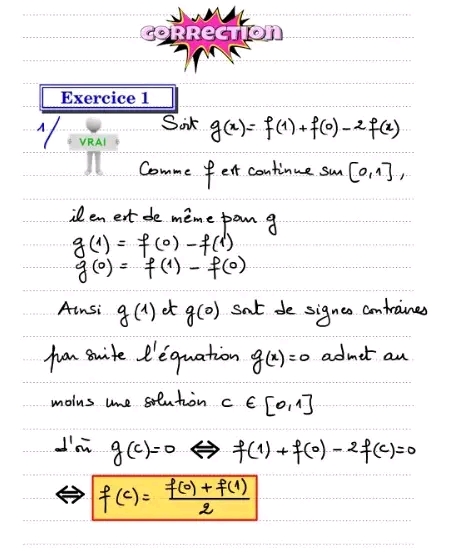 CORRECTION
Exercice 1
1/ VRAI Soit g(x) = f(1) + f(0) - 2f(x)
Comme f est continue sur [0,1],
il en est de même pour g
g(1) = f(0) - f(1)
g(0) = f(1) - f(0)
Ainsi g(1) et g(0) sont de signes contraires
par suite l'équation g(x) = 0 admet au
moins une solution c ∈ [0,1]
d'où g(c) = 0 ⇔ f(1) + f(0) - 2f(c) = 0
⇔ f(c) = (f(0) + f(1))/2